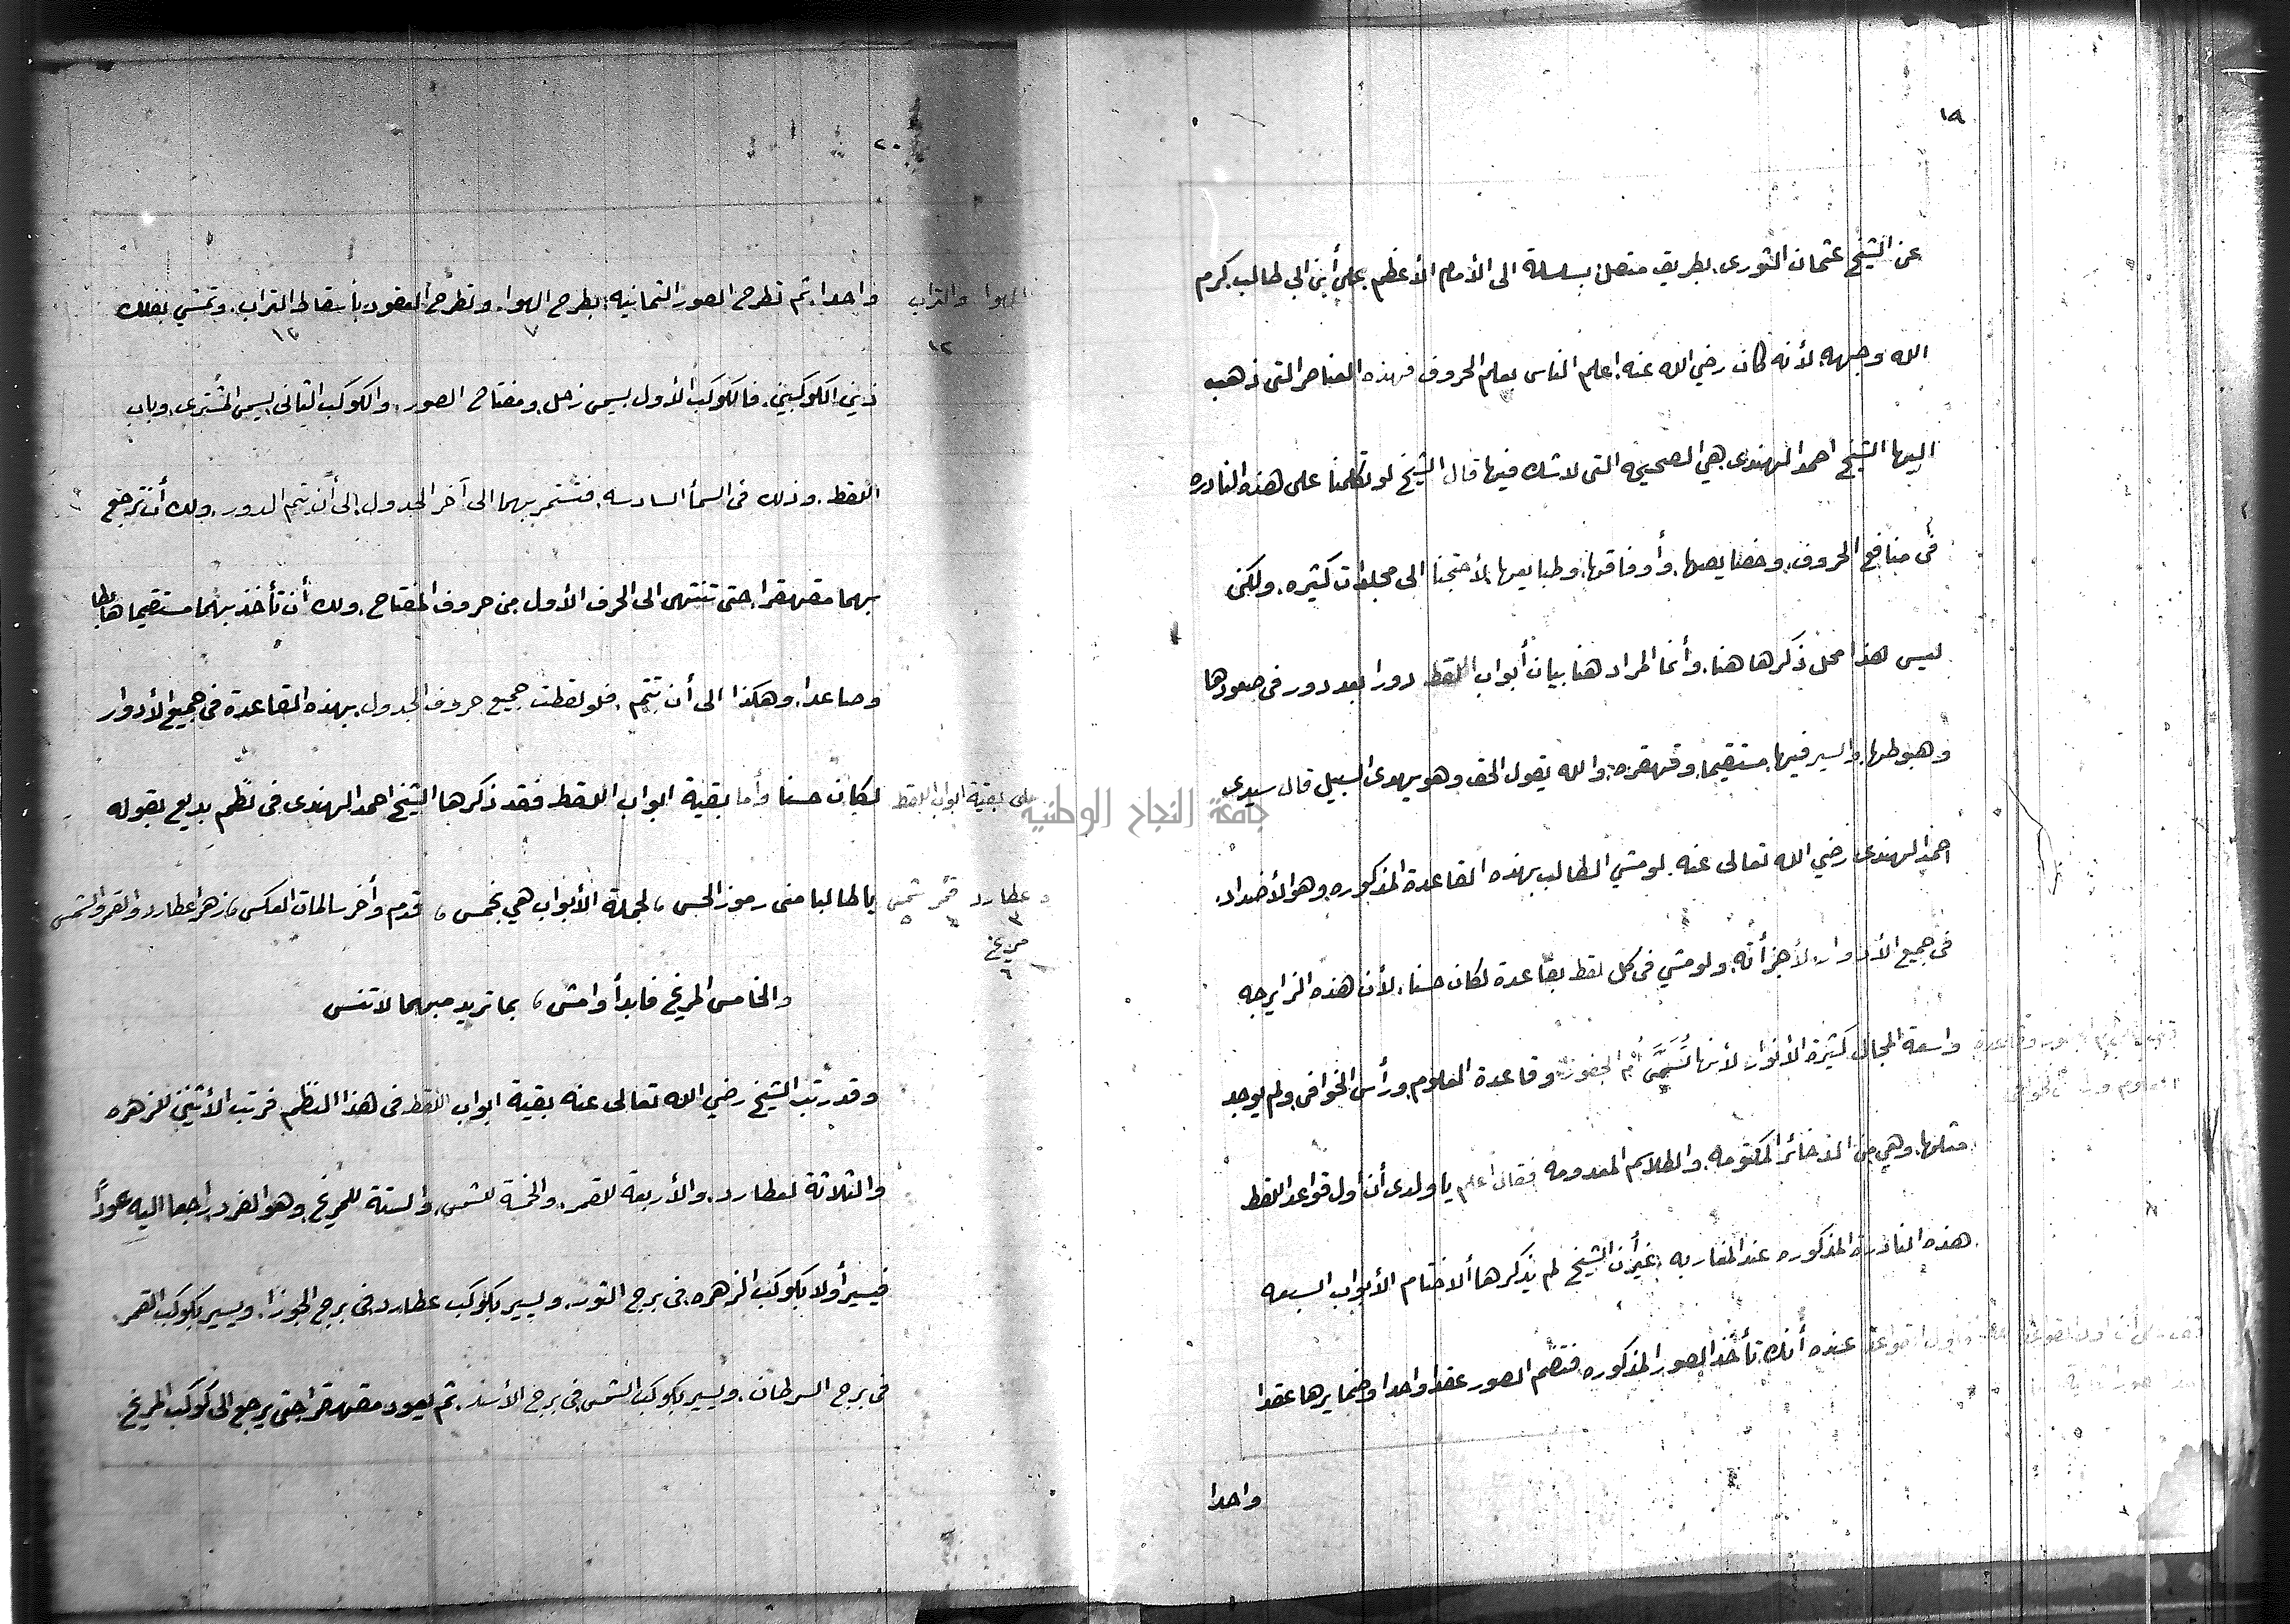 ١٩
عن الشيخ عثمان الثورى بطريق متصل بسلسلة الى الأمام الأعظم على أبن ابي طالب كرم
الله وجهه لأنه كان رضي الله عنه اعلم الناس بعلم الحروف فهذه العناصر التى ذهب
اليها الشيخ احمد الهندى هي الصحيحه التى لا شك فيها قال الشيخ لو تكلمنا على هذه النادره
فى منافع الحروف وخصايصها وأوفاقها وطبايعها لأحتجنا الى مجلدات كثيره ولكن
ليس هذا محل ذكرها هنا وأنما المراد هنا بيان أبواب اللقط دورا بعد دور فى صعودها
وهبوطها والسير فيها مستقيما وقهقره والله يقول الحق وهو يهدى السبيل قال سيدى
احمد الهندى رضي الله تعالى عنه لو مشي الطالب بهذه القاعدة المذكوره وهو الأضداد
فى جميع الأدوار لأجزأته ولو مشي فى كل لقط بقاعدة لكان حسنا لأن هذه الزايرجه
واسعة المجال كثيرة الأنوار لأنها تُسَمَّى أم الجفور وقاعدة العلوم ورأس الخوافى ولم يوجد
مثلها وهي من الذخائر المكتومه والطلاسم المعدومه فقال اعلم يا ولدى أن أول قواعد اللقط
هذه النادرة المذكوره عند المغاربه غير أن الشيخ لم يذكرها ألا ختام الأبواب السبعه
عنده أنك تأخذ الصور المذكوره فتضم الصور عقدا واحدا وضمايرها عقدا
واحدا
٢٠
الهوا والتراب
١٢
واحدا ثم تطرح الصور الثمانيه بطرح الهوا وتطرح العقود بأسقاط التراب وتمشي بفلك
٧ ١٢
ذين الكوكبين فالكوكب الأول يسمى زحل ومفتاح الصور والكوكب الثانى يسمى المشترى وباب
اللقط وذلك فى السمأ السادسه فتستمر بهما الى آخر الجدول إلى أن يتم الدور ولك أن ترجع
بهما مقهقرا حتى تنتهى الى الحرف الأول من حروف المفتاح ولك أن تأخذ بهما مستقيما هابطا
وصاعدا وهكذا الى أن تتم فلو لقطت جميع حروف الجدول بهذه القاعدة فى جميع الأدوار
على بقية ابواب اللقط
لكان حسنا وأما بقية ابواب اللقط فقد ذكرها الشيخ احمد الهندى فى نظم بديع بقوله
عطارد قمر شمس
٣ ٤ ٥
مريخ
٦
يا طالبا منى رموز الحس ، لجملة الأبواب هي بخمس ، قدم وأخر سالمات العكس ، زهرا عطارد والقمر والشمس
والخامس المريخ فابدأ وامش ، بما تريد مبهما لا تنس
وقد رتب الشيخ رضي الله تعالى عنه بقية ابواب اللقط فى هذا النظم فرتب الأثنين للزهره
والثلاثة لعطارد والأربعة للقمر والخمسة للشمس والستة للمريخ وهو الفرد راجعا اليه عودًا
فيسير أولا بكوكب الزهره فى برج الثور ويسير بكوكب عطارد فى برج الجوزا ويسير بكوكب القمر
فى برج السرطان ويسير بكوكب الشمس فى برج الأسد ثم يعود مقهقرا حتى يرجع الى كوكب المريخ
جامعة النجاح الوطنية